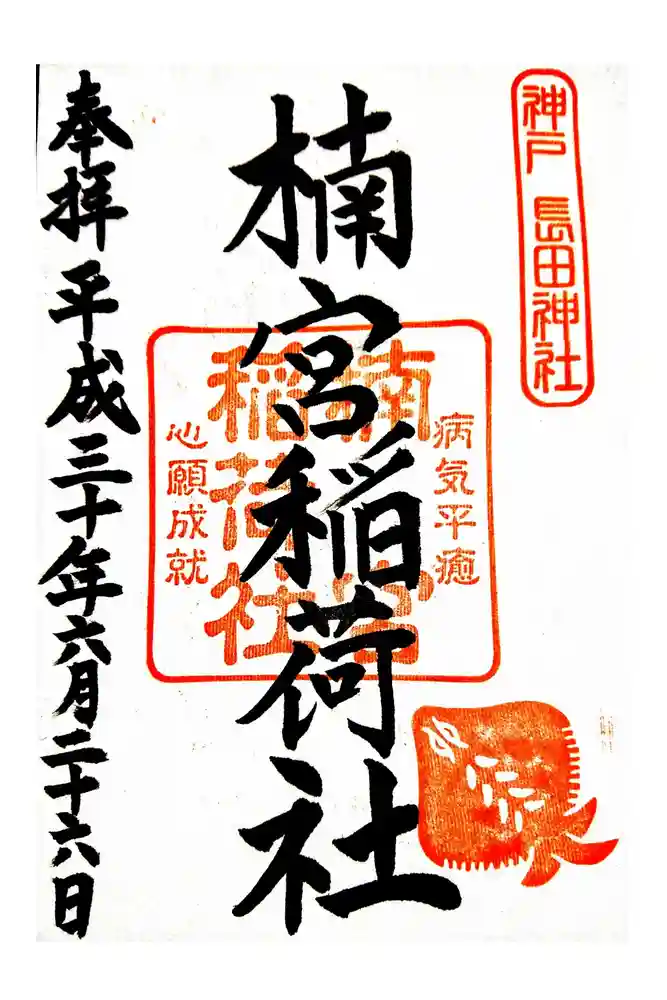 神戸 長田神社
病気平癒
楠宮稲荷社
楠宮
稲荷社
心願成就
奉拝 平成三十年六月二十六日